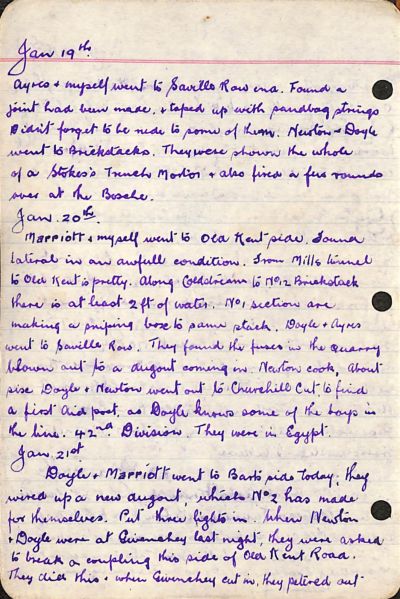 Jan 19th.
Ayres & myself went to Saville Row ena. Found a
joint had been made, & taped up with sandbag strings
Didn't forget to be rude to some of them. Newton & Doyle
went to Brickstacks. They were shown the whole
of a Stokes's Trench Mortor & also fired a few rounds
over at the Bosche.
Jan. 20th.
Marriott & myself went to Old Kent side. Found
lateral in an awfull condition. From Mills tunnel
to Old Kent is pretty. Along Coldstream to No 12 Brickstack
there is at least 2 ft of water. No 1 section are
making a sniping boxe to same stack. Doyle & Ayres
went to Saville Row. They found the fuses in the quarry
blown out to a dugout coming in. Newton cook, about
sise Doyle & Newton went out to Churchill Cut, to find
a first Aid post, as Doyle knows some of the boys in
the line. 42nd Division. They were in Egypt.
Jan. 21st.
Doyle & Marriott went to Barts side today, they
wired up a new dugout, which No 2 has made
for themselves. Put three lights in. When Newton
& Doyle were at Givenchey last night, they were asked
to break a coupling this side of Old Kent Road.
They did this & when Givenchey cut in, they petered out